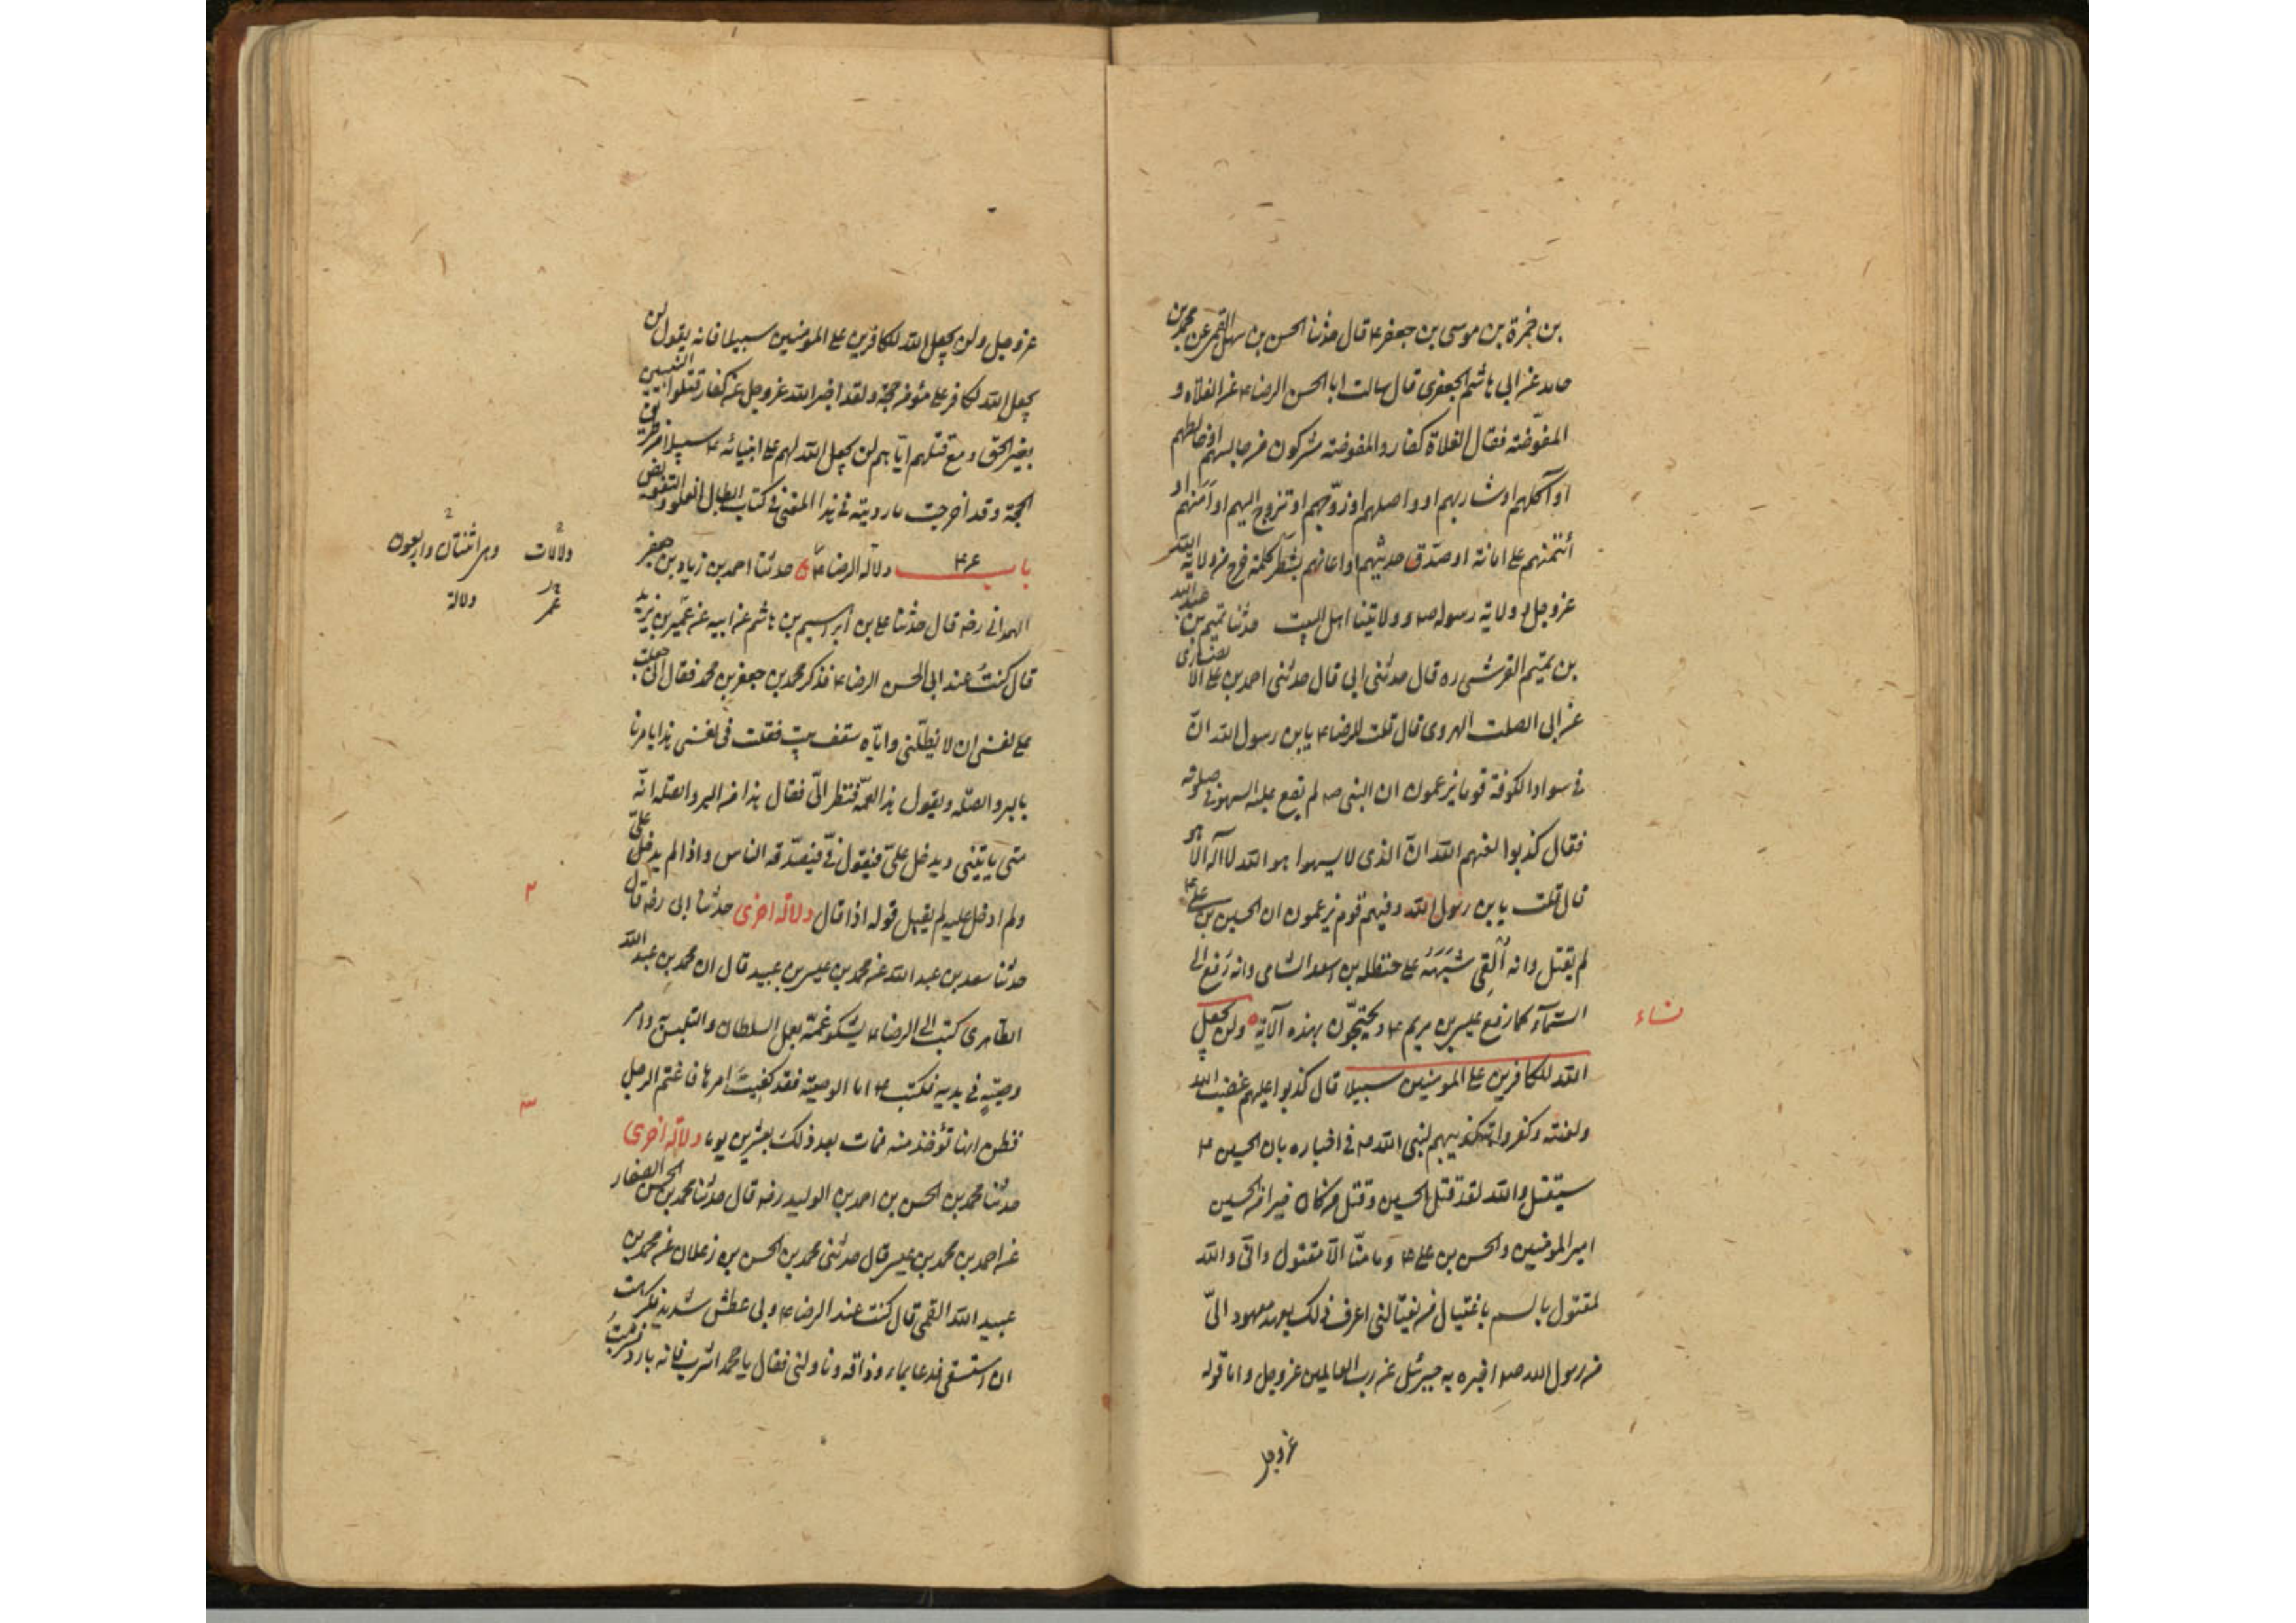 بن حمزة بن موسى بن جعفر ع قال حدثنا الحسن بن سهل القمى عن محمد بن
حامد عن ابى هاشم الجعفرى قال سالت ابا الحسن الرضا ع عن الغلاة و
المفوّضة فقال الغلاة كفار والمفوضة مشركون من جالسهم او خالطهم
او آكلهم او شاربهم او واصلهم او زوّجهم او تزوج اليهم او آمنهم او
ائتمنهم على امانة او صدّق حديثهم او اعانهم بشطر كلمة خرج من ولاية الله
عز وجل و ولاية رسوله ص و ولايتنا اهل البيت حدثنا تميم بن عبد الله
بن تميم القرشى ره قال حدثنى ابى قال حدثنى احمد بن على الانصارى
عن ابى الصلت الهروى قال قلت للرضا ع يا بن رسول الله انّ
فى سواد الكوفة قوما يزعمون ان النبى ص لم يقع عليه السهو فى صلوته
فقال كذبوا لعنهم الله انّ الذى لا يسهوا هو الله لا اله الا هو
قال قلت يا بن رسول الله وفيهم قوم يزعمون ان الحسين بن على ع
لم يقتل وانه اُلقِى شَبَهُه على حنظلة بن اسعد الشامى وانه رُفع الى
السّمآء كما رفع عيسى بن مريم ع ويحتجّون بهذه الآية ولن يجعل
نساء
الله للكافرين على المومنين سبيلا قال كذبوا عليهم غضب الله
ولعنته وكفروا بتكذيبهم لنبى الله ص فى اخباره بان الحسين ع
سيقتل والله لقد قتل الحسين وقتل من كان خيرا من الحسين
امير المومنين والحسن بن على ع وما منّا الّا مقتول وانّى والله
لمقتول بالسم باغتيال من يغتالنى اعرف ذلك بعهد معهود الىّ
من رسول الله ص اخبره به جبرئيل عن رب العالمين عز وجل واما قوله
عز وجل
عز وجل ولن يجعل الله للكافرين على المومنين سبيلا فانه يقول لن
يجعل الله لكافر على مؤمن حجة ولقد اخبر الله عز وجل عن كفار قتلوا النبيين
بغير الحق ومع قتلهم ايّاهم لن يجعل الله لهم على انبيائه ع سبيلا من طريق
الحجة وقد اخرجت ما رويته فى هذا المعنى فى كتاب ابطال الغلو والتفويض
باب ۴۶ دلالة الرضا ع حدثنا احمد بن زياد بن جعفر
دلالات وهى اثنتان واربعون
عمر دلالة
الهمدانى رضه قال حدثنا على بن ابراهيم بن هاشم عن ابيه عن عمير بن يزيد
قال كنت عند ابى الحسن الرضا ع فذكر محمد بن جعفر بن محمد فقال انى جعلت
على نفسى ان لا يظلّنى وايّاه سقف بيت فقلت فى نفسى هذا يامرنا
بالبر والصلة ويقول هذا لعمّه فنظر الىّ فقال هذا من البر والصلة انّه
متى ياتينى ويدخل علىّ فيقول فىّ فيصدّقه الناس واذا لم يدخل علىّ
ولم ادخل عليه لم يقبل قوله اذا قال دلالة اخرى حدثنا ابى رضه قال
۲
حدثنا سعد بن عبد الله عن محمد بن عيسى بن عبيد قال ان محمد بن عبد الله
الطاهرى كتب الى الرضا ع يشكو عمّه بعمل السلطان والتلبس به وامر
وصيّته فى يديه فكتب ع اما الوصية فقد كفيت امرها فاغتم الرجل
۳
فظن انها تؤخذ منه فمات بعد ذلك بعشرين يوما دلالة اخرى
حدثنا محمد بن الحسن بن احمد بن الوليد رضه قال حدثنا محمد بن الحسن الصفار
عن احمد بن محمد بن عيسى قال حدثنى محمد بن الحسن بن زعلان عن محمد بن
عبيد الله القمى قال كنت عند الرضا ع وبى عطش شديد فكرهت
ان استسقى فدعا بماء وذاقه وناولنى فقال يا محمد اشرب فانه بارد فشربت